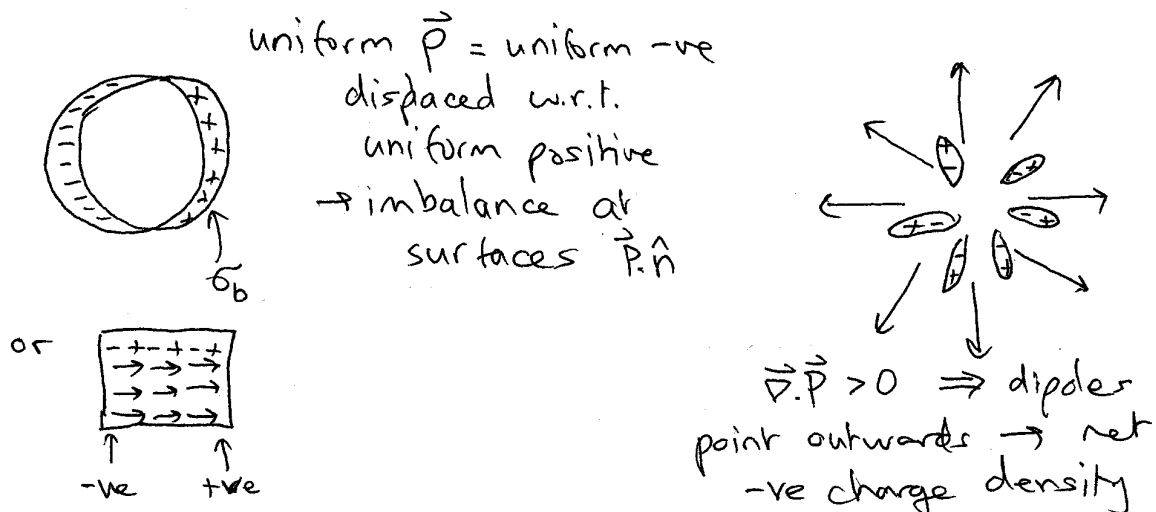 uniform P⃗ = uniform -ve
displaced w.r.t.
uniform positive
→ imbalance at
surfaces P⃗.n̂
σb
or
- + - + - +
-ve +ve
∇⃗.P⃗ > 0 ⇒ dipoles
point outwards → net
-ve charge density